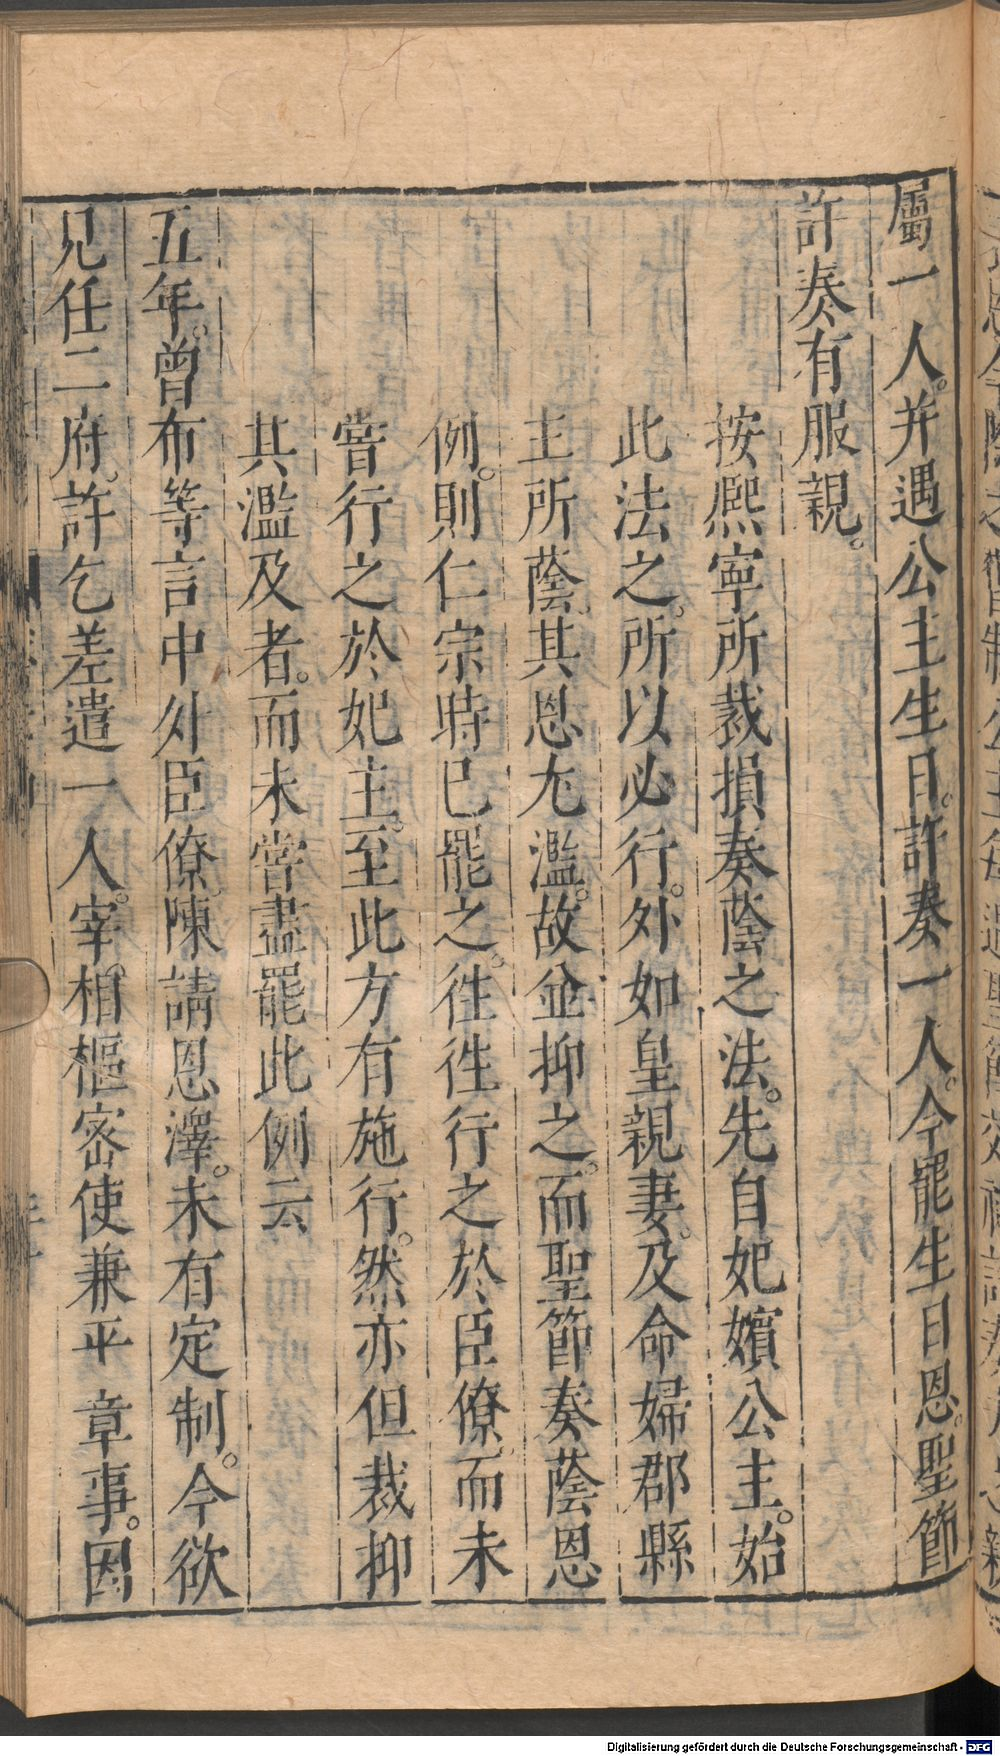 屬一人。并遇公主生日。許奏一人。今罷生日恩。聖節
許奏有服親。
按熈寧所裁損奏蔭之法。先自妃嬪公主。始
此法之。所以必行。外如皇親妻。及命婦郡縣
主所蔭。其恩尢濫。故並抑之。而聖節奏蔭恩
例。則仁宗時已罷之。徃徃行之於臣僚。而未
嘗行之於妃主。至此方有施行。然亦但裁抑
其濫及者。而未嘗盡罷此例云
五年。曾布等言中外臣僚。陳請恩澤。未有定制。今欲
見任二府。許乞差遣一人。宰。相樞宻使兼平章事。因
Digitalisierung gefördert durch die Deutsche Forschungsgemeinschaft - DFG